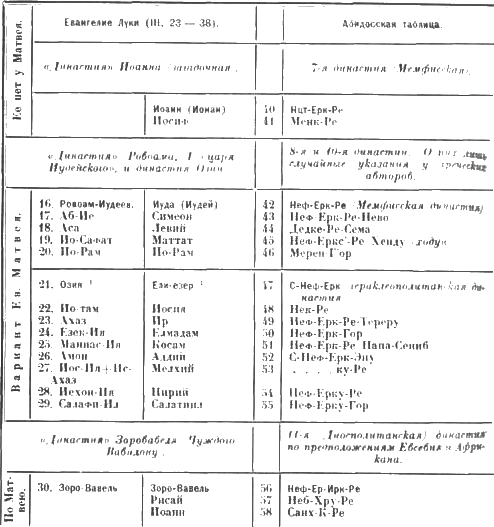 Евангелие Луки (III, 23 — 38).
Абидосская таблица.
Ее нет у Матвея.
«Династия» Иоанна
7-я династия (Мемфисская).
Иоанн (Ионан) 40 Нит-Ерк-Ре
Иосиф 41 Менк-Ре
«Династия» Ровоама, 1 царя
Иудейского, и династия Озии
8-я и 10-я династии. О них лишь
случайные указания у греческих
авторов.
Вариант Ев. Матвея.
16. Ровоам-Иудеев. Иуда (Иудей) 42 Неф-Ерк-Ре (Мемфисская династия)
17. Аб-Ие Симеон 43 Неф-Ерк-Ре-Нево
18. Аса Левий 44 Дедке-Ре-Сема
19. Ио-Сафат Маттат 45 Неф-Ерке-Ре Хенду
20. Ио-Рам Ио-Рам 46 Мерен-Гор
21. Озия Ели-езер 47 С-Неф-Ерк (гераклеополитанская ди-
настия
22. Ио-там Иосия 48 Нек-Ре
23. Ахаз Ир 49 Неф-Ерк-Ре-Тереру
24. Езек-Ия Елмадам 50 Неф-Ерк-Гор
25. Маннас-Ия Косам 51 Неф-Ерк-Ре Папа-Сениб
26. Амон Аддий 52 С-Неф-Ерк-Эну
27. Иос-Ия+Ис-
Ахаз Мелхий 53 . . . . ку-Ре
28. Иехон-Ия Нирий 54 Неф-Ерку-Ре
29. Салафи-Ил Салатиил 55 Неф-Ерку-Гор
«Династия» Зоровабеля Чуждого
Вавилону.
11-я (Диосполитанская) династия
по преположениям Евсевия и Афри-
кана.
По Мат-
вею.
30. Зоро-Вавель Зоро-Вавель 56 Неф-Ер-Ирк-Ре
Рисай 57 Неб-Хру-Ре
Иоанн 58 Санх-К-Ре